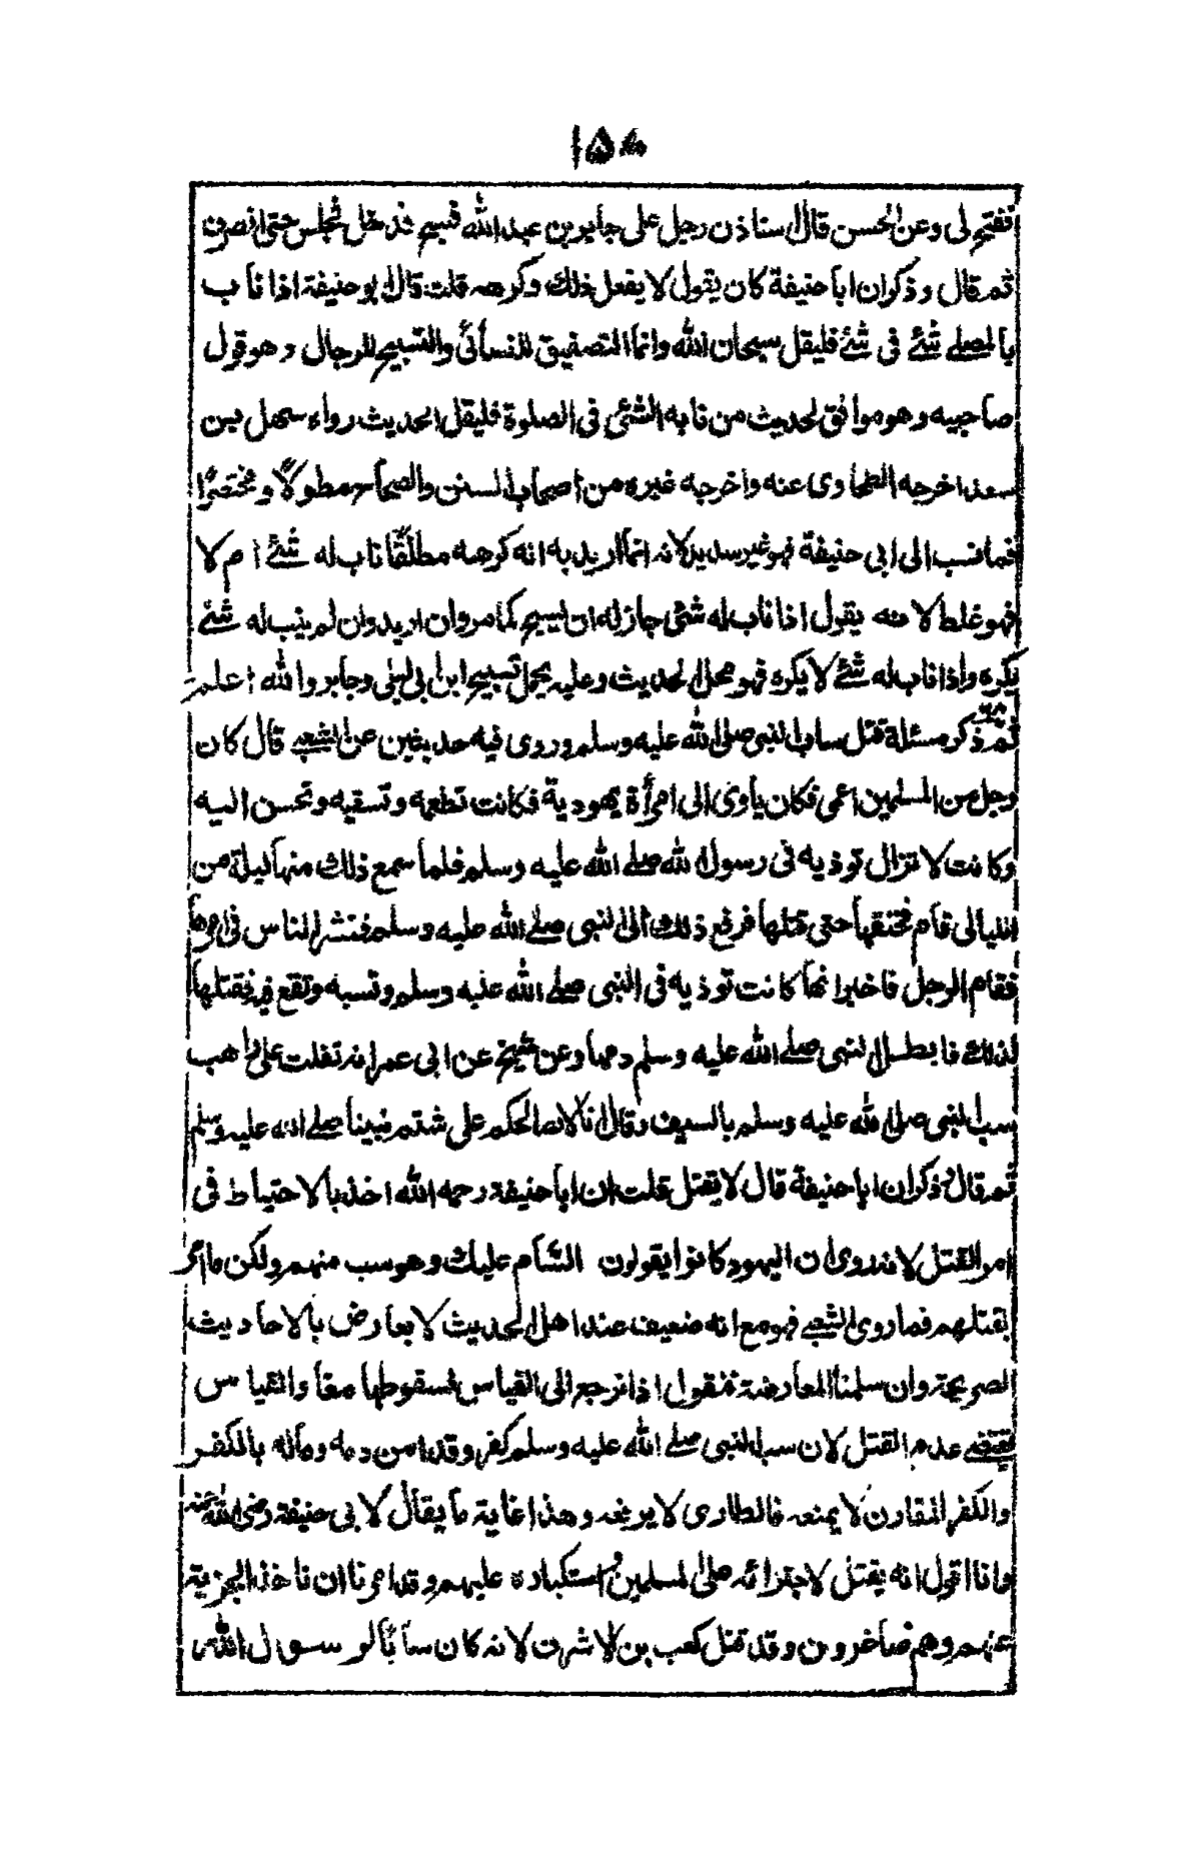 ۱۵۸
تفتح لى وعن الحسن قال استاذن رجل على جابر بن عبد الله فسبح فدخل فجلس حتى انصرف
ثم قال وذكر ان ابا حنيفة كان يقول لا يفعل ذلك وكرهه قلت قال ابو حنيفة اذا ناب
بالمصلے شئے فى شئے فليقل سبحان الله وانما التصفيق للنسائى والتسبيح للرجال وهو قول
صاحبيه وهو موافق لحديث من نابه الشئى فى الصلوة فليقل الحديث رواه سهل بن
سعد اخرجه الطحاوى عنه واخرجه غيره من اصحاب السنن والصحاح مطولًا ومختصرًا
فما نسب الى ابى حنيفة فهو غير سديد لانه انما اريد به انه كرهه مطلقًا ناب له شئے ام لا
فهو غلط لانه يقول اذا ناب له شئى جاز له ان يسبح كما مر وان اريد وان لم ينب له شئے
يكره واذا ناب له شئے لا يكره فهو محل الحديث وعليه يحمل تسبيح ابن ابى ليلى وجابر والله اعلم
ثم ذكر مسئلة قتل ساب النبى صلى الله عليه وسلم وروى فيه حديثين عن الشعبے قال كان
رجل من المسلمين اعمى فكان ياوى الى امرأة يهودية فكانت تطعمه وتسقيه وتحسن اليه
وكانت لا تزال توذيه فى رسول الله صلے الله عليه وسلم فلما سمع ذلك منها ليلة من
الليالى قام فخنقها حتى قتلها فرفع ذلك الى النبى صلے الله عليه وسلم فنشد الناس فى امرها
فقام الرجل فاخبر انها كانت توذيه فى النبى صلے الله عليه وسلم وتسبه وتقع فيه فقتلها
لذلك فابطل النبى صلے الله عليه وسلم دمها وعن شيخ عن ابى عمر انه تفلت على راهب
سب النبى صلى الله عليه وسلم بالسيف وقال انا لا نصالحكم على شتم نبينا صلے الله عليه وسلم
ثم قال وذكر ان ابا حنيفة قال لا يقتل قلت ان ابا حنيفة رحمه الله اخذ بالاحتياط فى
امر القتل لانه روى ان اليهود كانوا يقولون السّام عليك وهو سب منهم ولكن ما امر
بقتلهم فما روى الشعبے فهو مع انه ضعيف عند اهل الحديث لا يعارض بالاحاديث
الصريحة وان سلمنا المعارضة فنقول اذا نرجع الى القياس لسقوطها معا والقياس
يقتضے عدم القتل لان سب النبى صلے الله عليه وسلم كفر وقد امن دمه وماله بالكفر
والكفر المقارن لا يمنعه فالطارى لا يرفعه وهذا غاية ما يقال لابى حنيفة رضى الله عنه
وانا اقول انه يقتل لاجترائه على المسلمين واستكباره عليهم وقد امرنا ان ناخذ الجزية
عنهم وهم صاغرون وقد قتل كعب بن الاشرف لانه كان سابًا لرسول الله